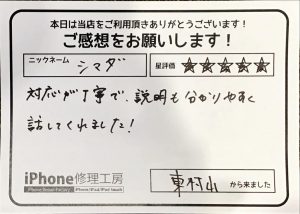 本日は当店をご利用頂きありがとうございます!
ご感想をお願いします!
ニックネーム シマダ 星評価 ★★★★★
対応が丁寧で、説明も分かりやすく
話してくれました!
iPhone修理工房
iPhone Repair Factory iPhone/iPad/iPod touch
東村山 から来ました